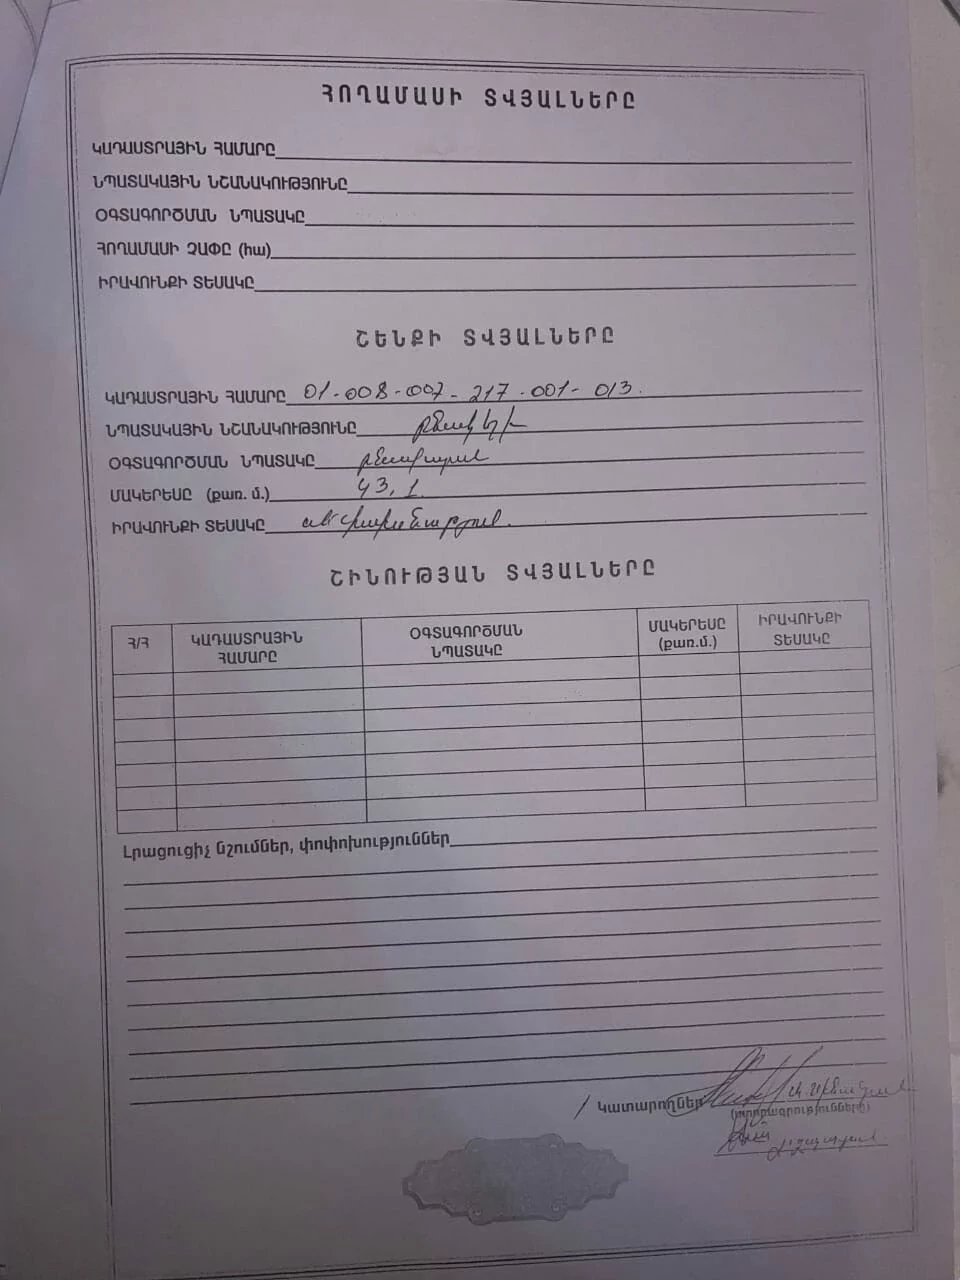 ՀՈՂԱՄԱՍԻ ՏՎՅԱԼՆԵՐԸ
ԿԱԴԱՍՏՐԱՅԻՆ ՀԱՄԱՐԸ
ՆՊԱՏԱԿԱՅԻՆ ՆՇԱՆԱԿՈՒԹՅՈՒՆԸ
ՕԳՏԱԳՈՐԾՄԱՆ ՆՊԱՏԱԿԸ
ՀՈՂԱՄԱՍԻ ՉԱՓԸ (հա)
ԻՐԱՎՈՒՆՔԻ ՏԵՍԱԿԸ
ՇԵՆՔԻ ՏՎՅԱԼՆԵՐԸ
ԿԱԴԱՍՏՐԱՅԻՆ ՀԱՄԱՐԸ 01-008-007-217-001-013.
ՆՊԱՏԱԿԱՅԻՆ ՆՇԱՆԱԿՈՒԹՅՈՒՆԸ
ՕԳՏԱԳՈՐԾՄԱՆ ՆՊԱՏԱԿԸ բնակարան
ՄԱԿԵՐԵՍԸ (քառ. մ.) 43,1
ԻՐԱՎՈՒՆՔԻ ՏԵՍԱԿԸ սեփականություն
ՇԻՆՈՒԹՅԱՆ ՏՎՅԱԼՆԵՐԸ
Հ/Հ ԿԱԴԱՍՏՐԱՅԻՆ ՀԱՄԱՐԸ ՕԳՏԱԳՈՐԾՄԱՆ ՆՊԱՏԱԿԸ ՄԱԿԵՐԵՍԸ (քառ.մ.) ԻՐԱՎՈՒՆՔԻ ՏԵՍԱԿԸ
Լրացուցիչ նշումներ, փոփոխություններ
Կատարողներ
(ստորագրությունները)